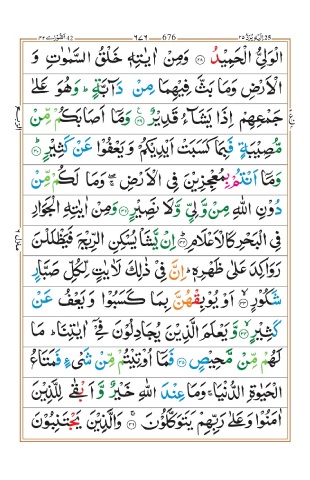 اليه يرد ٢٥ 676 ٦٧٦ الشورى ٤٢
الْوَلِيُّ الْحَمِيْدُ ﴿۲۸﴾ وَمِنْ اٰيٰتِهٖ خَلْقُ السَّمٰوٰتِ وَ
الْاَرْضِ وَمَا بَثَّ فِيْهِمَا مِنْ دَآبَّةٍ ؕ وَهُوَ عَلٰى
جَمْعِهِمْ اِذَا يَشَآءُ قَدِيْرٌ ﴿۲۹﴾ وَمَاۤ اَصَابَكُمْ مِّنْ
مُّصِيْبَةٍ فَبِمَا كَسَبَتْ اَيْدِيْكُمْ وَيَعْفُوْا عَنْ كَثِيْرٍ ﴿۳۰﴾
وَمَاۤ اَنْتُمْ بِمُعْجِزِيْنَ فِى الْاَرْضِ ۖۚ وَمَا لَكُمْ مِّنْ
دُوْنِ اللّٰهِ مِنْ وَّلِىٍّ وَّلَا نَصِيْرٍ ﴿۳۱﴾ وَمِنْ اٰيٰتِهِ الْجَوَارِ
فِى الْبَحْرِ كَالْاَعْلَامِ ﴿۳۲﴾ اِنْ يَّشَاْ يُسْكِنِ الرِّيْحَ فَيَظْلَلْنَ
رَوَاكِدَ عَلٰى ظَهْرِهٖ ؕ اِنَّ فِىْ ذٰلِكَ لَاٰيٰتٍ لِّكُلِّ صَبَّارٍ
شَكُوْرٍ ﴿۳۳﴾ اَوْ يُوْبِقْهُنَّ بِمَا كَسَبُوْا وَيَعْفُ عَنْ
كَثِيْرٍ ﴿۳۴﴾ وَّيَعْلَمَ الَّذِيْنَ يُجَادِلُوْنَ فِىْۤ اٰيٰتِنَا ؕ مَا
لَهُمْ مِّنْ مَّحِيْصٍ ﴿۳۵﴾ فَمَاۤ اُوْتِيْتُمْ مِّنْ شَىْءٍ فَمَتَاعُ
الْحَيٰوةِ الدُّنْيَا ۚ وَمَا عِنْدَ اللّٰهِ خَيْرٌ وَّاَبْقٰى لِلَّذِيْنَ
اٰمَنُوْا وَعَلٰى رَبِّهِمْ يَتَوَكَّلُوْنَ ﴿۳۶﴾ وَالَّذِيْنَ يَجْتَنِبُوْنَ